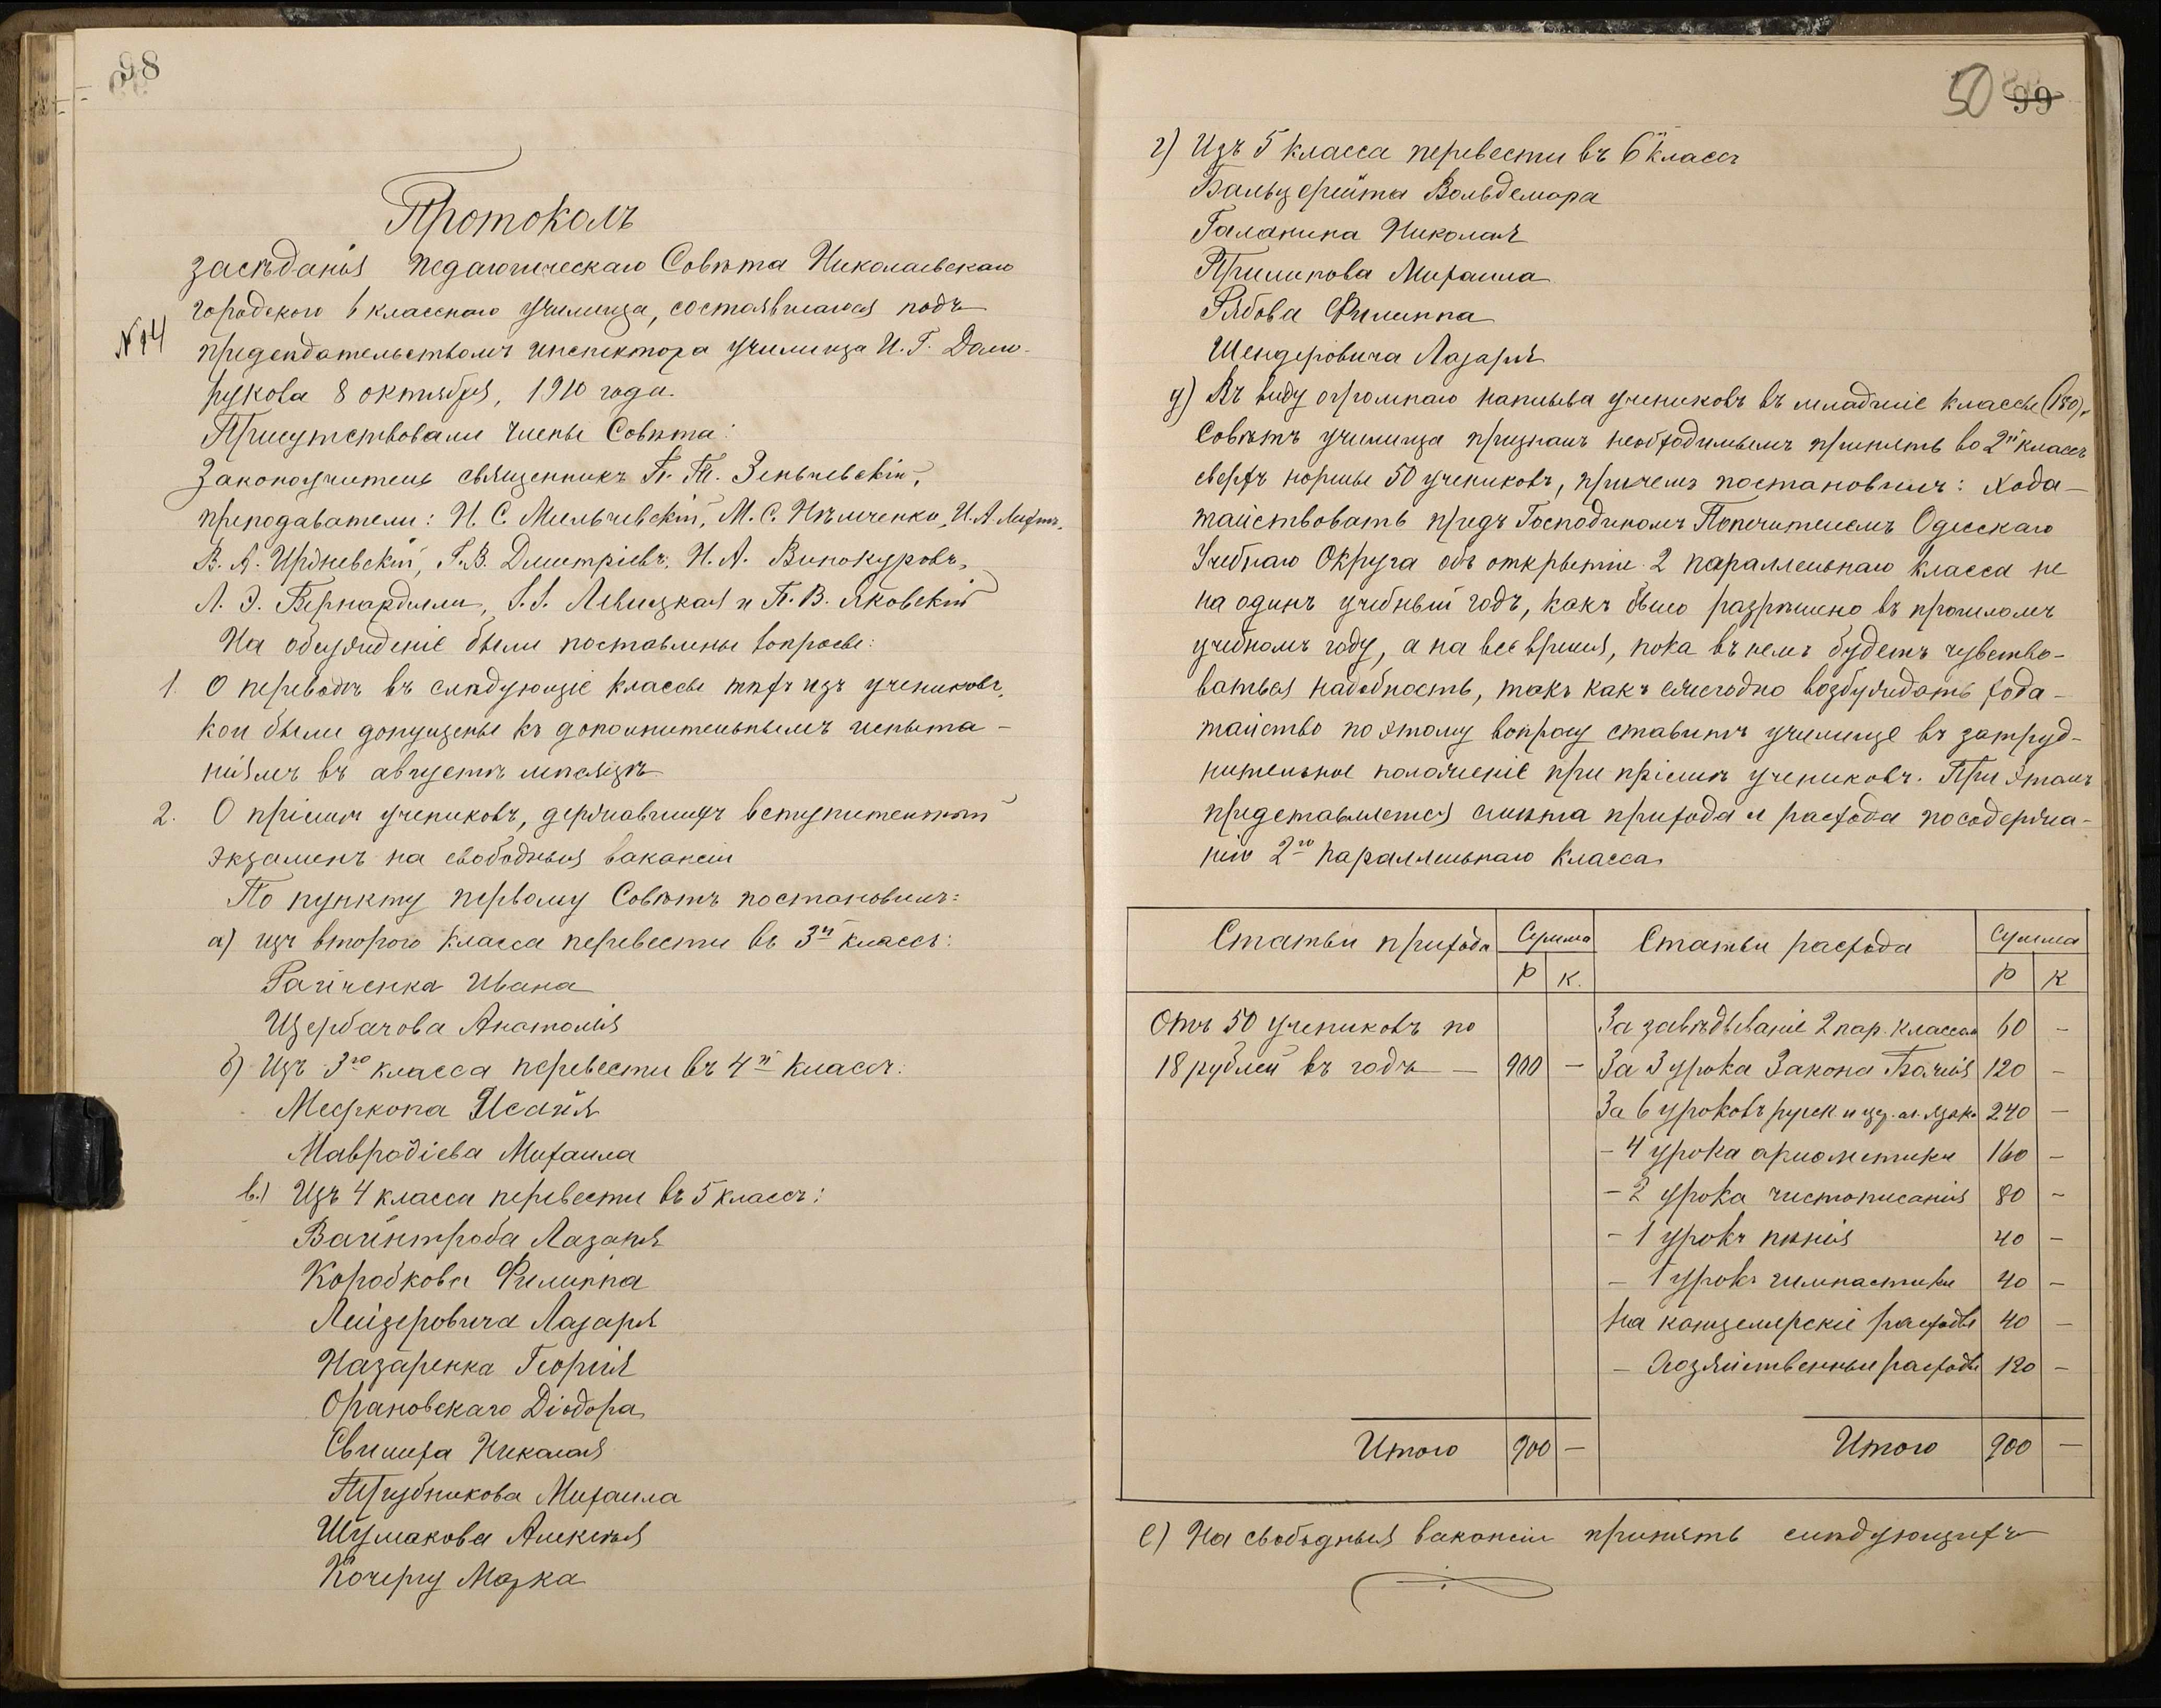 98
Протоколъ
засѣданія педагогическаго Совѣта Николаевскаго
городского 6 класснаго училища, состоявшагося подъ
№ 14
предсѣдательствомъ инспектора училища И. Г. Долю-
рукова 8 октября, 1910 года.
Присутствовали Члены Совѣта:
Законоучитель священникъ П. Т. Зеньчевскій,
преподаватели: И. С. Мильчевскій, М. С. Нѣмченко, И. А.
В. А. Ирдневскій, Г. В. Дмитріевъ, Н. А. Винокуровъ,
Л. Э. Бернардилли, Левицкая и П. В. Яковскій
На обсужденіе были поставлены вопросы:
1. О переводѣ въ слѣдующіе классы тѣхъ изъ учениковъ,
кои были допущены къ дополнительнымъ испыта-
ніямъ въ августѣ мѣсяцѣ
2. О пріемѣ учениковъ, державшихъ вступительный
экзаменъ на свободныя вакансіи
По пункту первому Совѣтъ постановилъ:
а) изъ второго класса перевести въ 3й классъ:
Райченка Ивана
Щербачова Анатолія
б) Изъ 3го класса перевести въ 4й классъ:
Исайя
Мавродіева Михаила
в.) Изъ 4 класса перевести въ 5 классъ:
Вайнтроба Лазаря
Коробкова Филиппа
Лейзеровича Лазаря
Назаренка Георгія
Орановскаго Діодора
Николая
Трубникова Михаила
Шумакова Алексѣя
Кочергу Марка
50 99
г) Изъ 5 класса перевести въ 6й классъ
Бальцерейта Вольдемара
Галанина Николая
Прилипова Михаила
Рябова Филиппа
Шендеровича Лазаря
д) Въ виду огромнаго наплыва учениковъ въ младшіе классы (150),
Совѣтъ училища призналъ необходимымъ принять во 2й классъ
сверхъ нормы 50 учениковъ, причемъ постановилъ: Хода-
тайствовать предъ Господиномъ Попечителемъ Одесскаго
Учебнаго Округа объ открытіе 2 параллельнаго класса не
на одинъ учебный годъ, какъ было разрѣшено въ прошломъ
учебномъ году, а на все время, пока въ немъ будетъ чувство-
ваться надобность, такъ какъ ежегодно возбуждать хода-
тайство по этому вопросу ставитъ училище въ затруд-
нительное положеніе при пріемѣ учениковъ. При этомъ
представляется смѣта прихода и расхода по содержа-
нію 2го параллельнаго класса
Статьи прихода Сумма Статьи расхода Сумма
Р К. Р К
Отъ 50 учениковъ по За завѣдываніе 2 пар. классомъ 60 -
18 рублей въ годъ - 900 - За 3 урока Закона Божія 120 -
За 6 уроковъ русск. и цер. сл. языка 240 -
- 4 урока ариѳметики 160 -
- 2 урока чистописанія 80 -
- 1 урокъ пѣнія 40 -
- 1 урокъ гимнастики 40 -
На канцелярскіе расходы 40 -
- Хозяйственные расходы 120 -
Итого 900 - Итого 900 -
е) На свободныя вакансіи принять слѣдующихъ